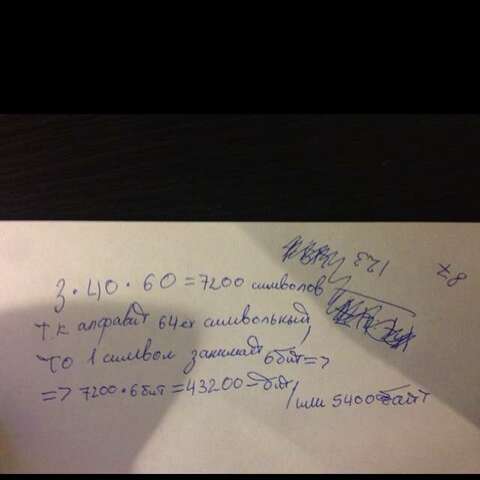 3 · 40 · 60 = 7200 символов
т.к алфавит 64ех символьный,
то 1 символ занимает 6бит =>
=> 7200 · 6 бит = 43200 бит, или 5400 байт
123
87